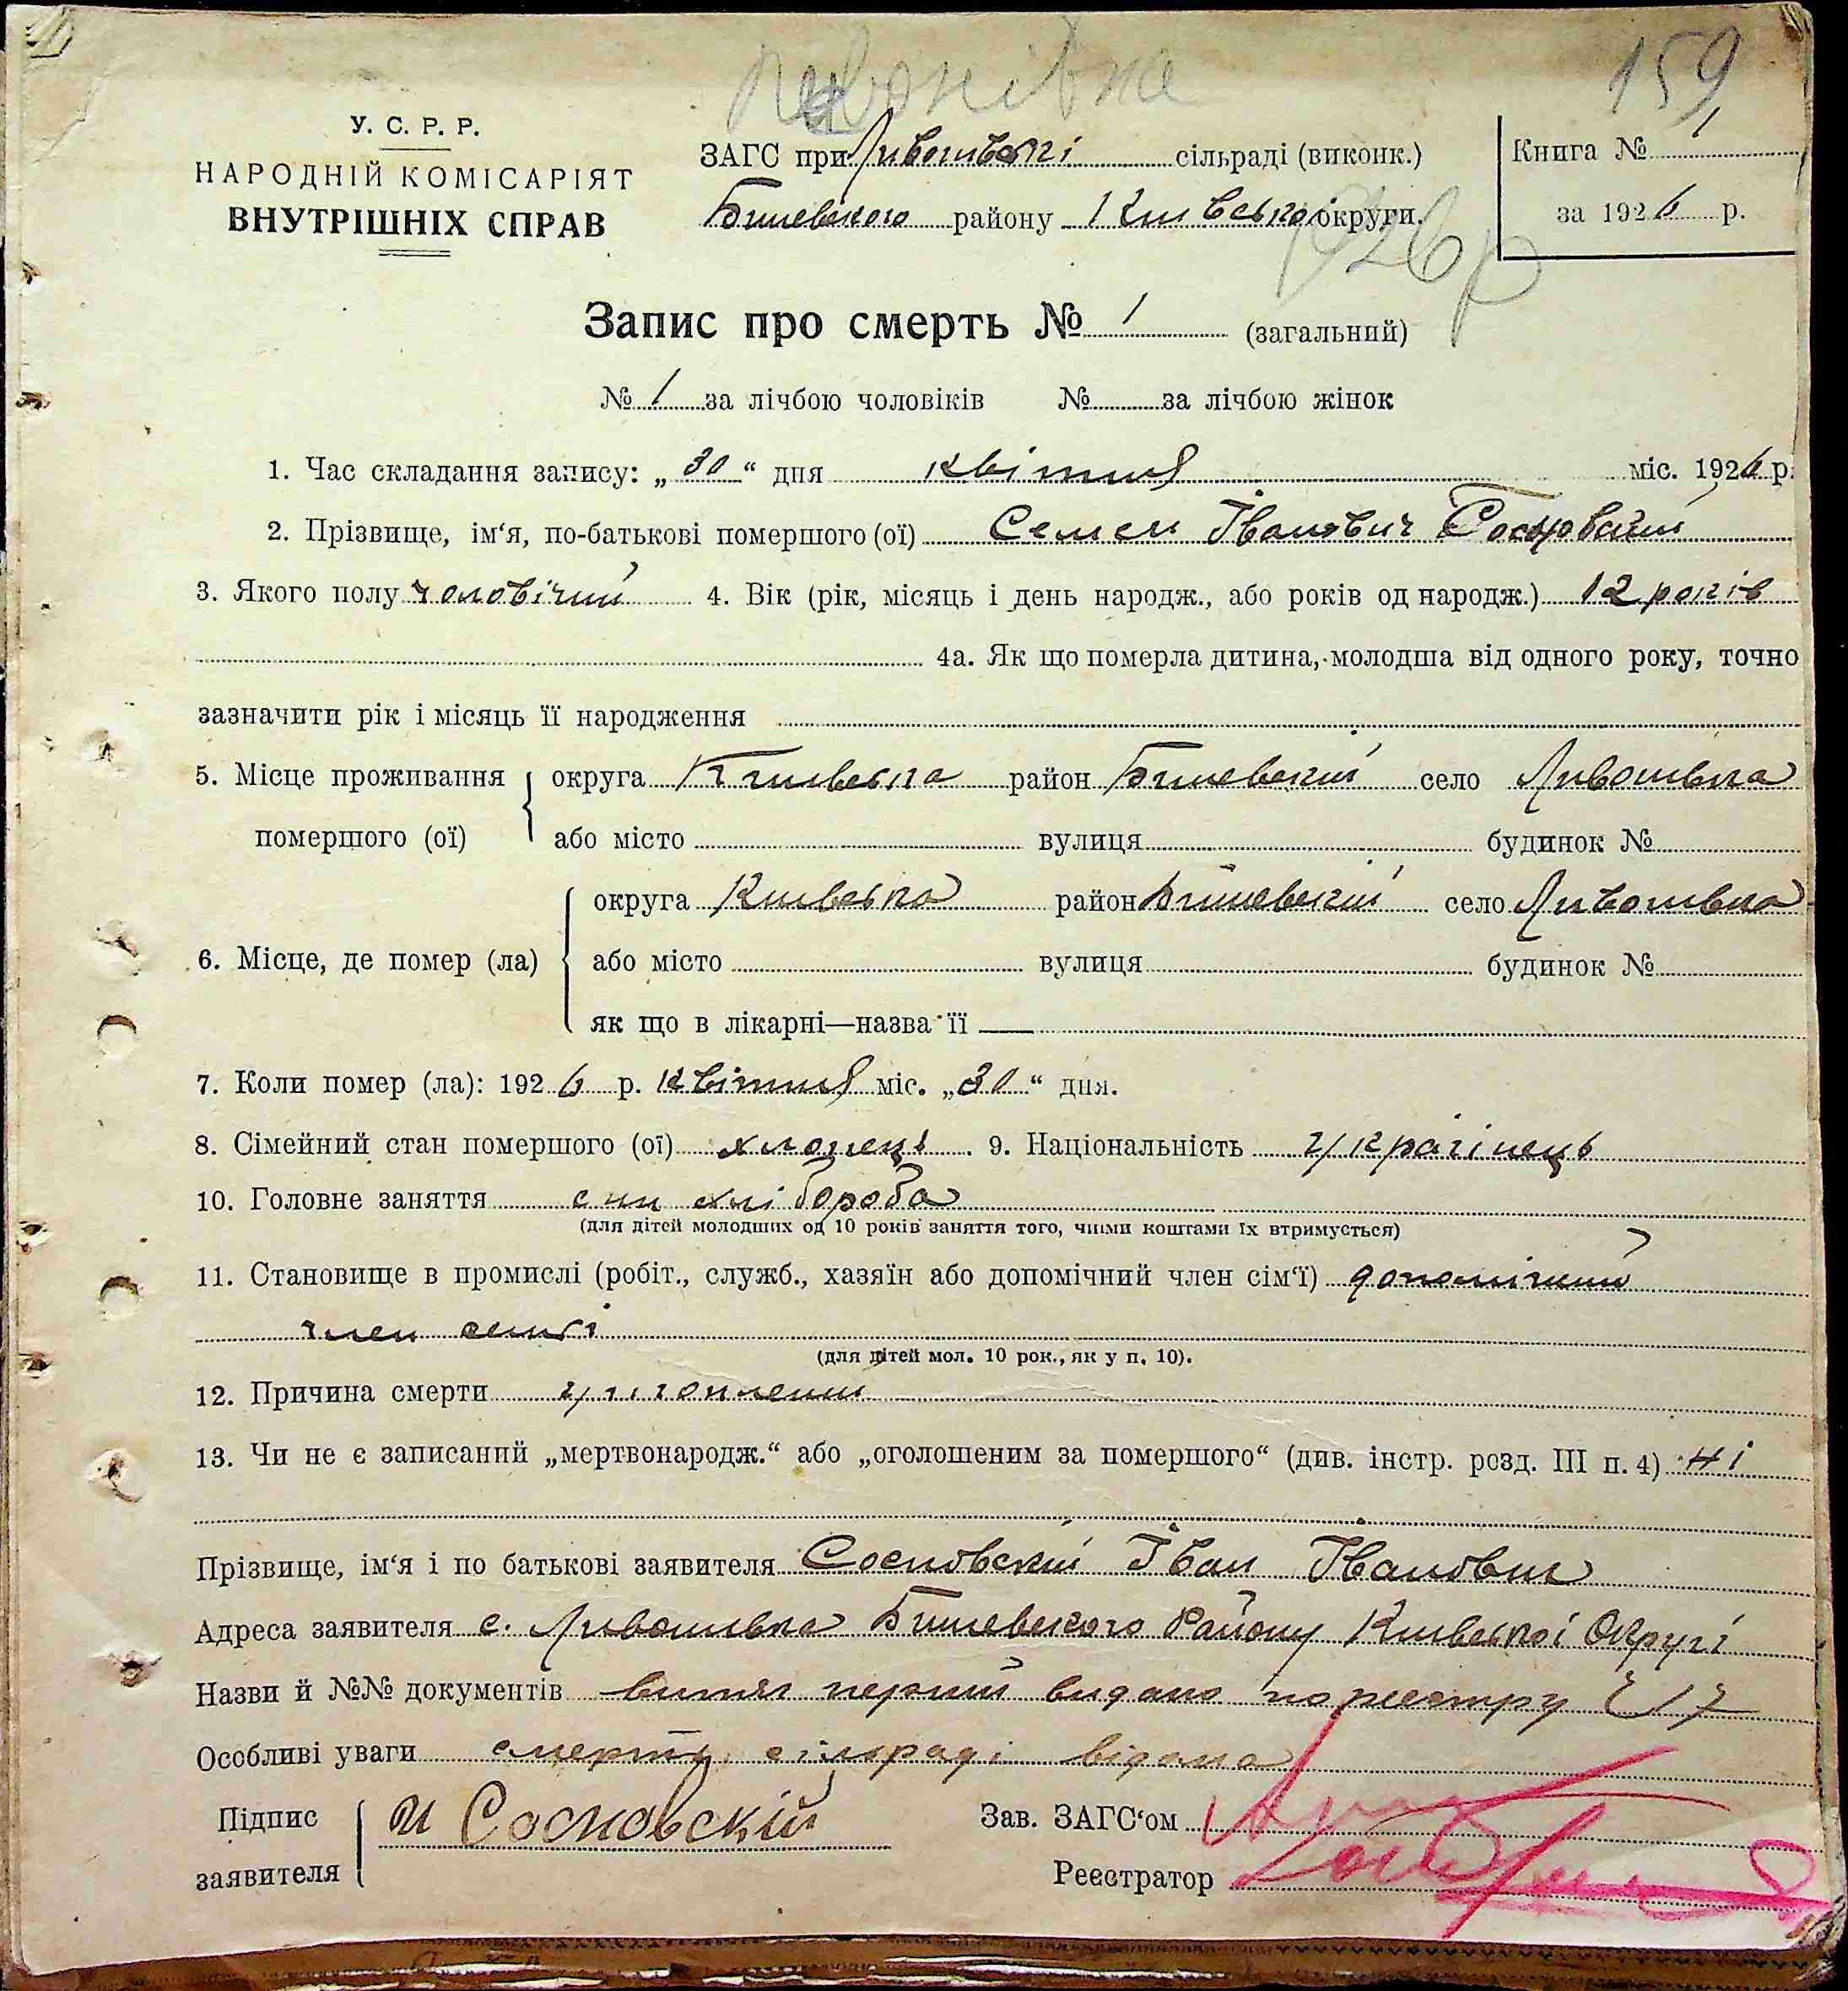 159
У. С. Р. Р.
НАРОДНІЙ КОМІСАРІЯТ
ВНУТРІШНІХ СПРАВ
ЗАГС при сільраді (виконк.)
Бишевского району Київської округи.
Книга № 1
за 1926 р.
1926 р
Запис про смерть № 1 (загальний)
№ 1 за лічбою чоловіків № за лічбою жінок
1. Час складання запису: „ 30 “ дня квітня міс. 1926 р.
2. Прізвище, ім‘я, по-батькові помершого (ої) Семен Іванович
3. Якого полу чоловічий 4. Вік (рік, місяць і день народж., або років од народж.) 12 років
4а. Як що померла дитина, молодша від одного року, точно
зазначити рік і місяць її народження
5. Місце проживання округа Київська район Бишевский село Ливонівка
помершого (ої) або місто вулиця будинок №
округа Київська район Бишевский село Ливонівка
6. Місце, де помер (ла) або місто вулиця будинок №
як що в лікарні—назва її —
7. Коли помер (ла): 1926 р. квітня міс. „30“ дня.
8. Сімейний стан помершого (ої) хлопець. 9. Національність українець
10. Головне заняття син хлібороба
(для дітей молодших од 10 років заняття того, чиїми коштами їх втримується)
11. Становище в промислі (робіт., служб., хазяїн або допомічний член сім‘ї) допомічний
член семʼї
(для дітей мол. 10 рок., як у п. 10).
12. Причина смерти
13. Чи не є записаний „мертвонародж.“ або „оголошеним за помершого“ (див. інстр. розд. III п. 4) ні
Прізвище, ім‘я і по батькові заявителя Сосновский Іван Іванович
Адреса заявителя с. Ливонівка Бишевского Району Київської Округі
Назви й №№ документів витяг перший видано по реестру 17
Особливі уваги сільраді відома
Підпис
заявителя
И Сосновскій
Зав. ЗАГС‘ом
Реєстратор